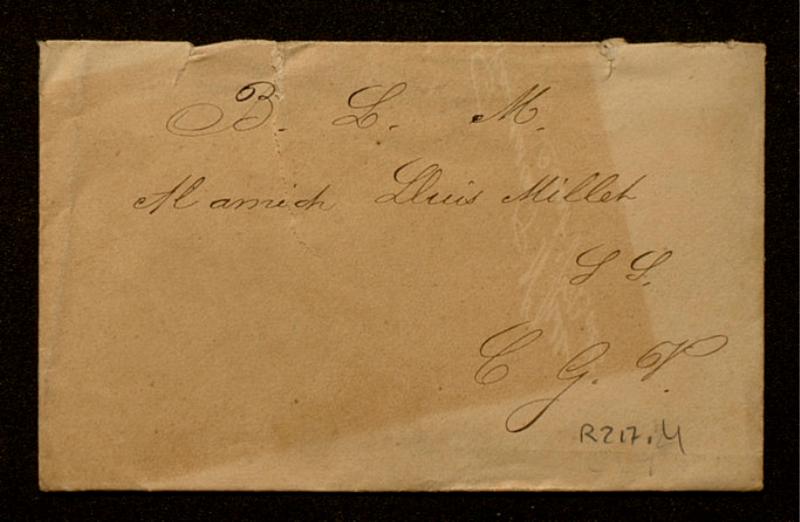 B. L. M.
Al amich Lluis Millet
S S.
C G. V.
R217.4